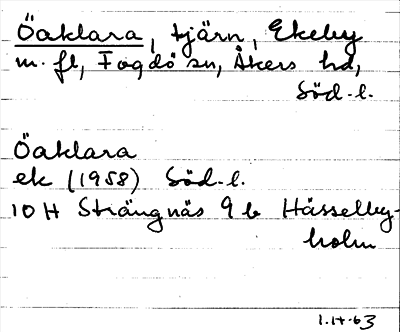 Öaklara, tjärn, Ekeby
m. fl, Fogdö sn, Åkers hd,
Söd.l.
Öaklara
ek (1958) Söd.l.
10 H Strängnäs 9 b Hässelby-
holm
1.H.63